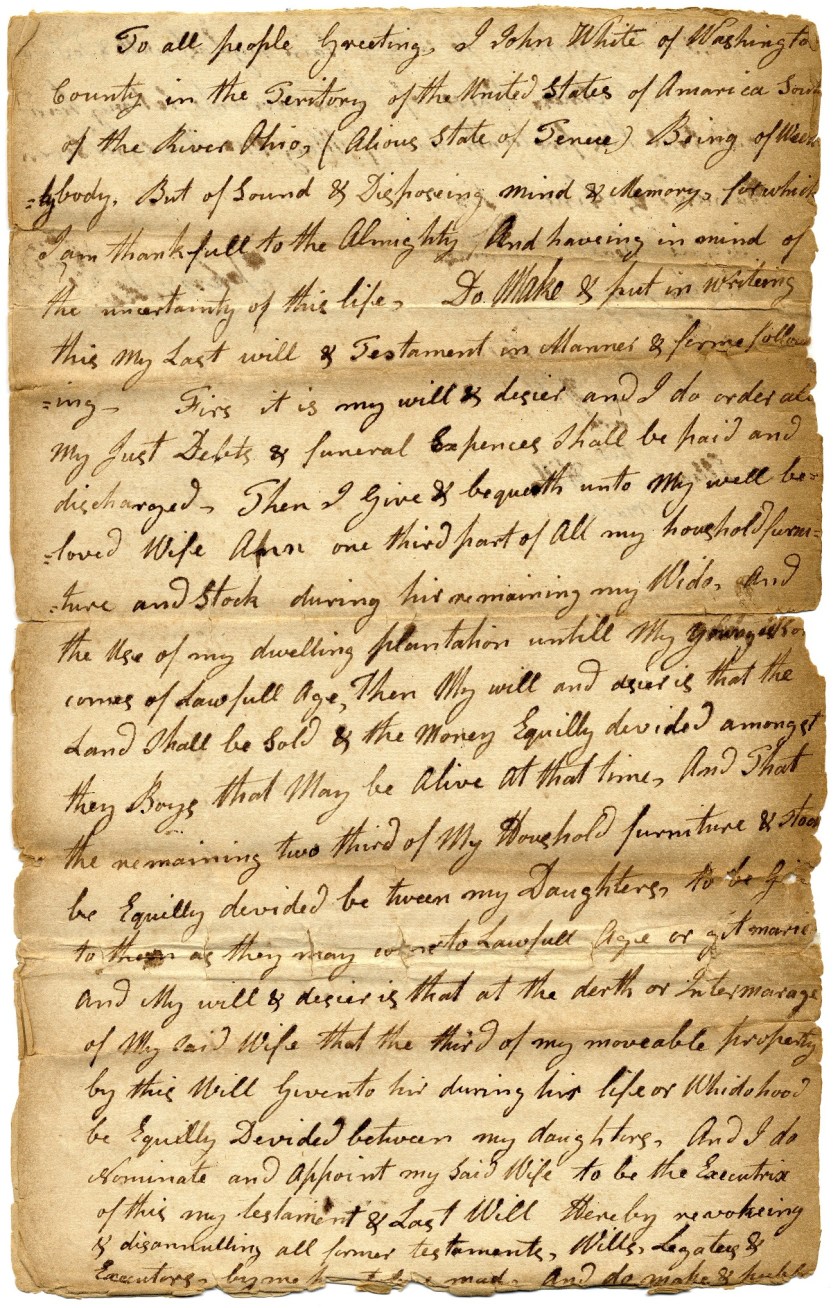 To all people Greeting, I John White of Washingto
County in the Teritory of the United States of Amarica Sou
of the River Ohio, (Alious State of Tenece) Being of Weak
=lybody, But of Sound & Disposeing mind & Memory, for which
I am thankfull to the Almighty, And haveing in mind of
the uncertainty of this life, Do Make & put in writeing
this My Last will & Testament in Manner & forme follow
=ing, Firs it is my will & desier and I do order all
My Just Debts & funeral Expences Shall be paid and
discharged, Then I Give & bequeth unto My well be=
=loved Wife Ann one third part of All my houshold furni=
=ture and Stock during hir remaining my Wido, And
the Use of my dwelling plantation untill My youngest son
comes of Lawfull Age, Then My will and desier is that the
Land Shall be Sold & the Money Equilly divided amongst
they Boys that May be Alive at that time, And That
the remaining two third of My Houshold furniture & Stock
be Equilly divided be tween my Daughters, to be Gi=
to them as they may come to Lawfull Age or git marie
And My will & desier is that at the derth or Intermarage
of My said Wife that the third of my moveable property
by this Will Given to hir during hir life or Whidohood
be Equilly Devided between my daughters, And I do
Nominate and Appoint my Said Wife to be the Executrix
of this my testament & Last Will Hereby revokeing
& disannulling all former testaments, Wills, Legates &
Executors, by me mad, And do make &